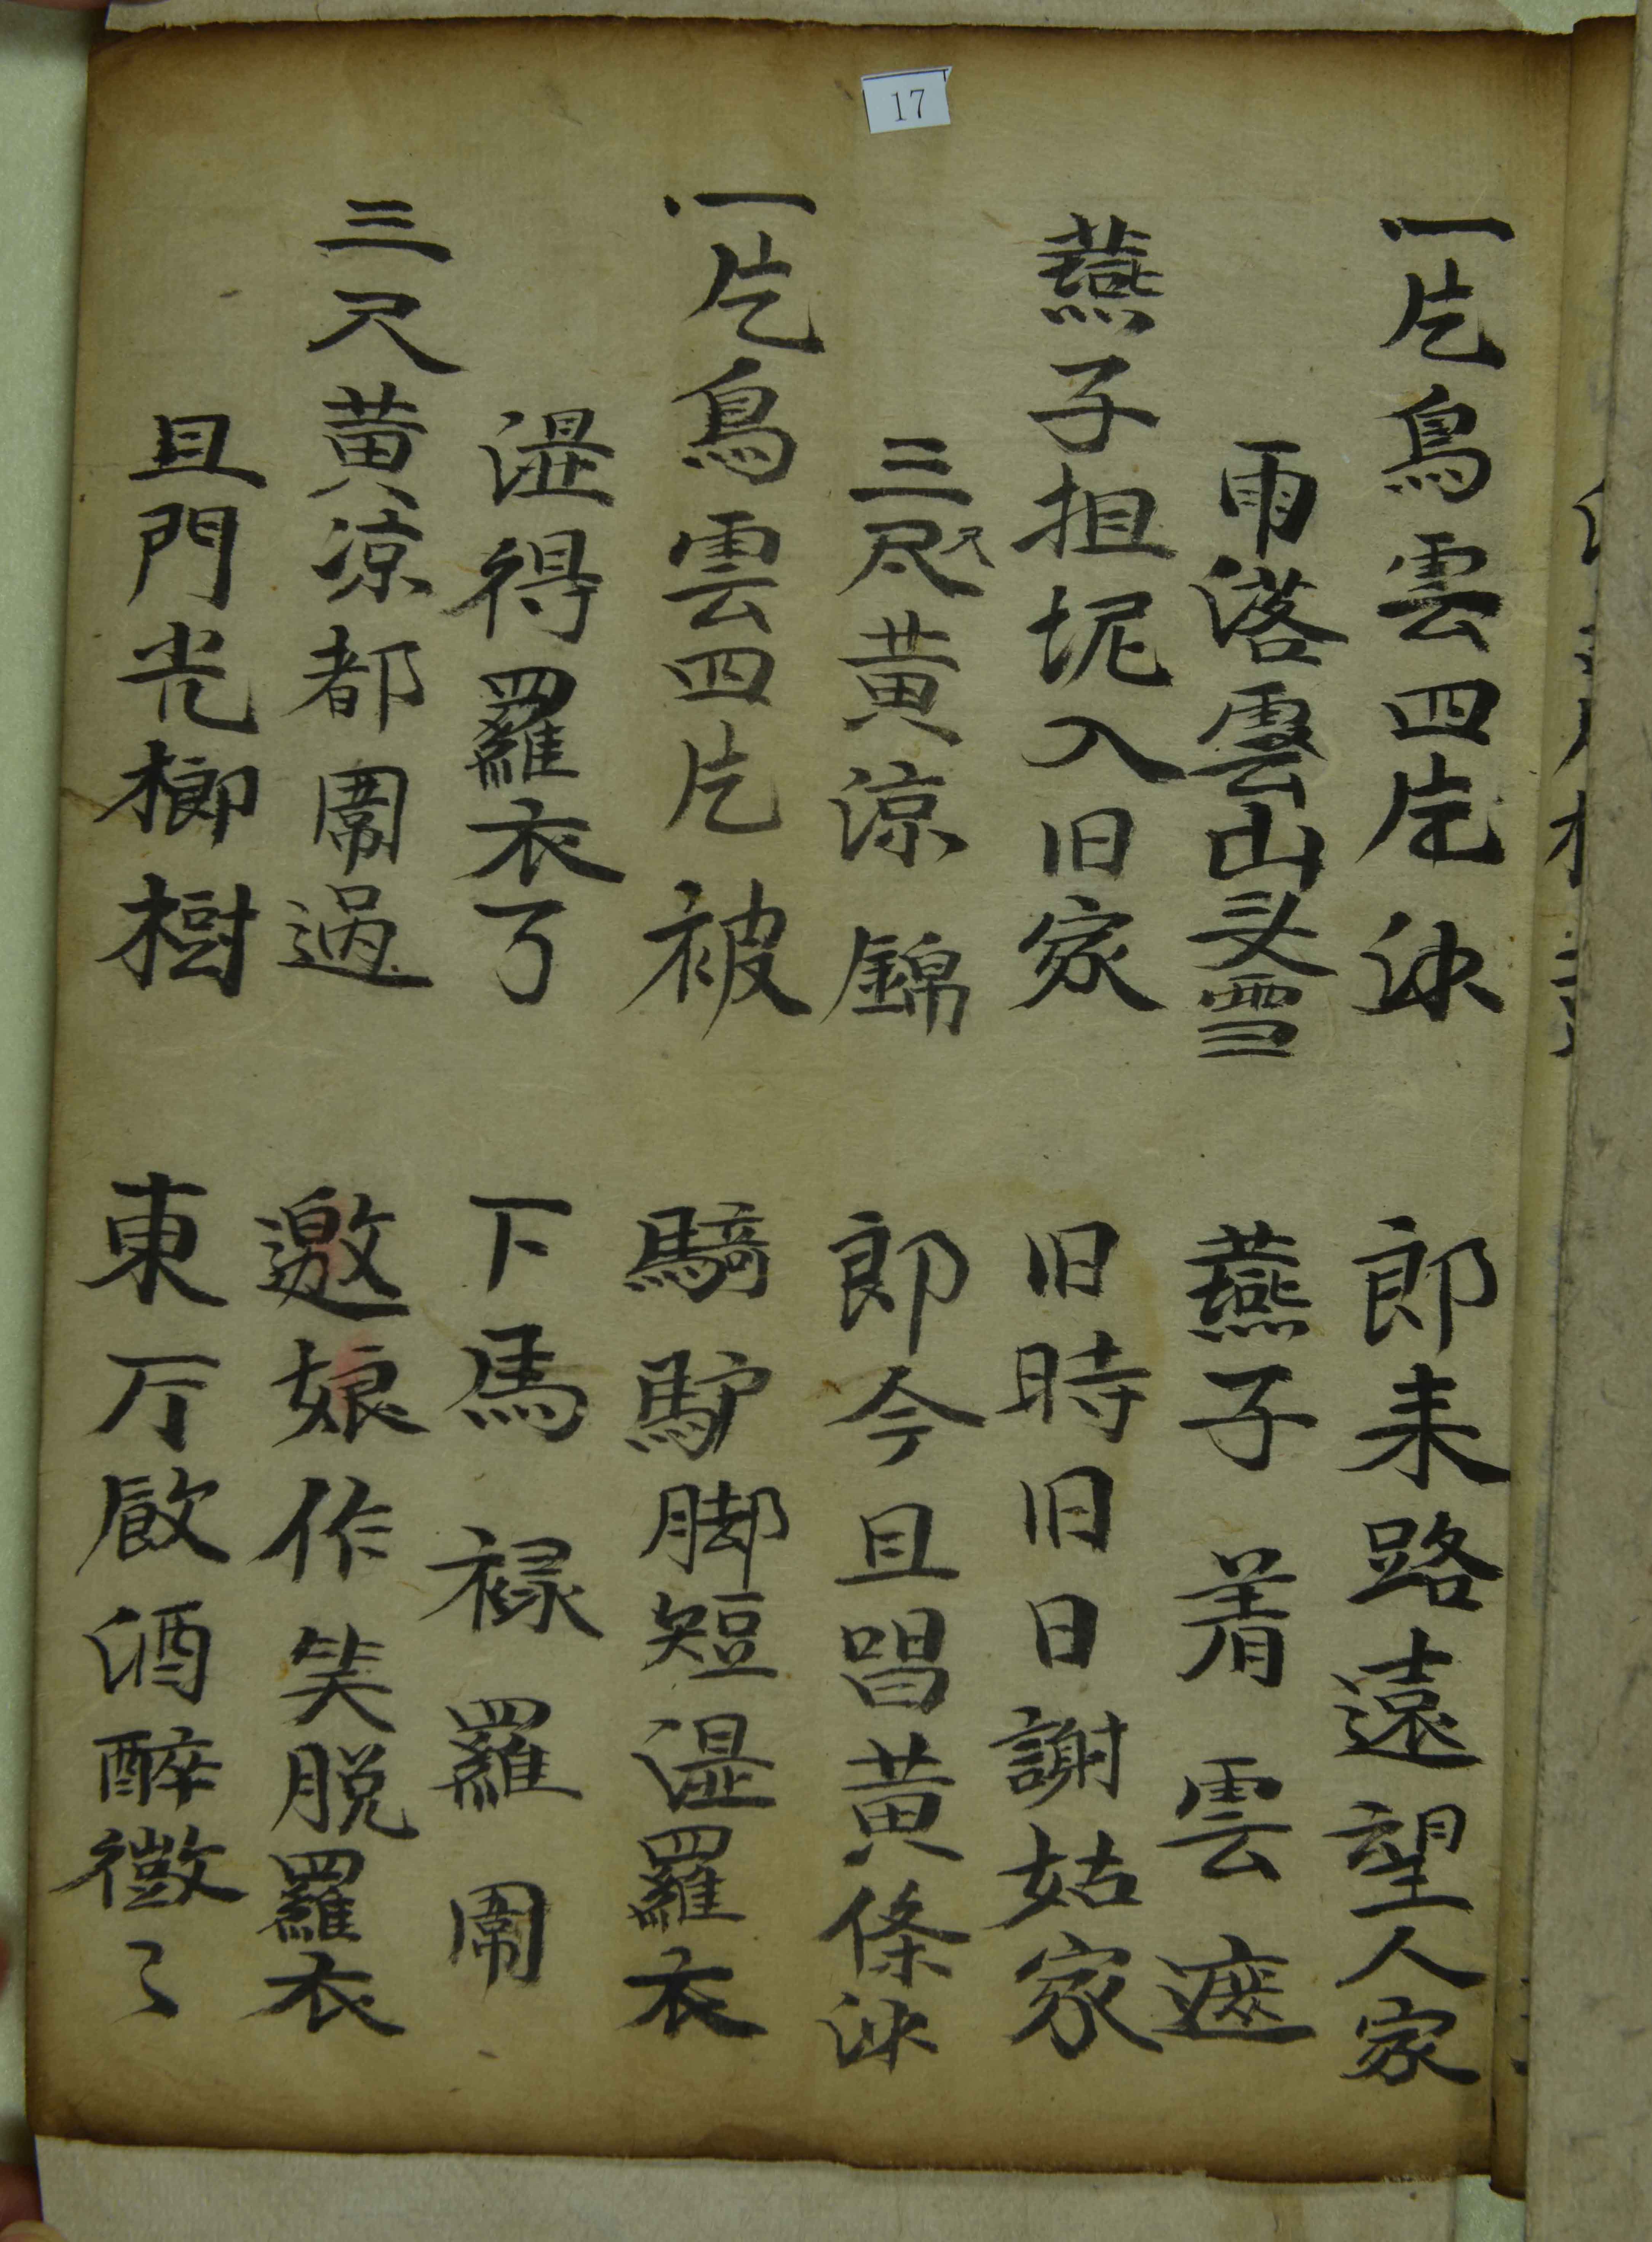 17
一片烏雲四片泱 郎耒路遠望人家
雨落雲山头雪 燕子着雲遮
燕子抯坭入旧家 旧時旧日謝姑家
三尺黄涼錦 郎今且唱黄條泱
一片烏雲四片被 騎馿脚短湿羅衣
湿得羅衣了 下馬禄羅閙
三尺黄凉都閙過 邀娘作笑脱羅衣
且門光榔樹 東厅飮酒醉微了